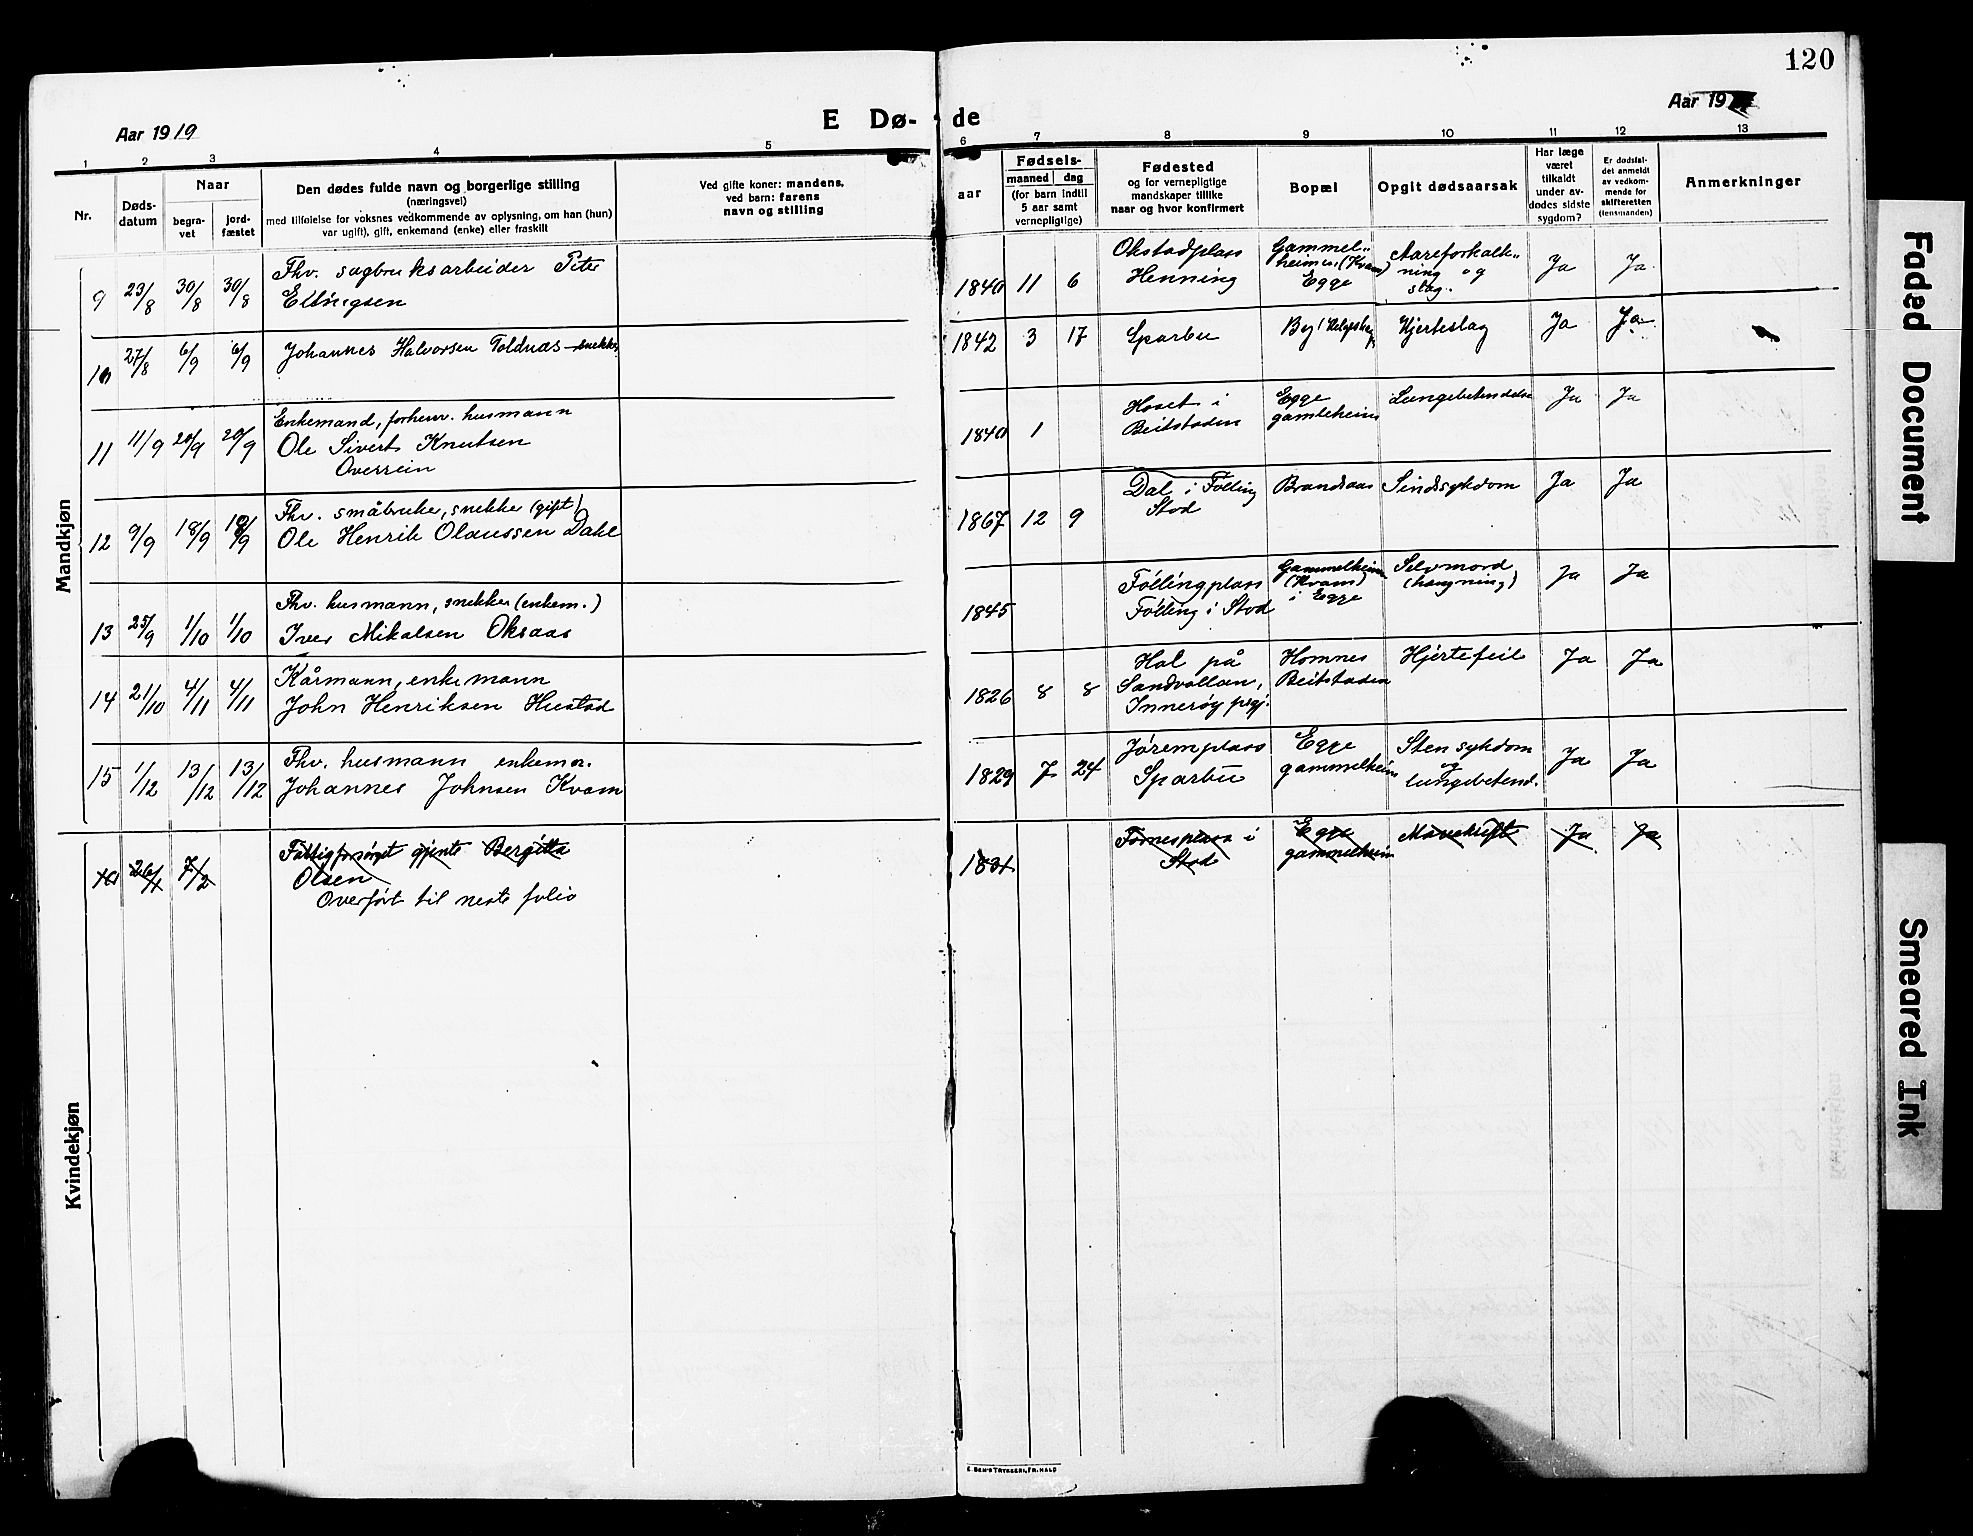 120
Aar 1919
E Dø-
de
Aar 19
1 2 3 4 5 6 7 8 9 10 11 12 13
Nr.
Døds-
datum
Naar
begra-
vet
jord-
fæstet
Den dødes fulde navn og borgerlige stilling
(næringsvei)
med tilføielse for voksnes vedkommende av oplysning, om han (hun)
var ugift), gift, enkemand (enke) eller fraskilt
Ved gifte koner: mandens,
ved barn: farens
navn og stilling
aar
Fødsels-
maaned dag
(for barn indtil
5 aar samt
vernepligtige)
Fødested
og for vernepligtige
mandskaper tillike
naar og hvor konfirmert
Bopæl
Opgit dødsaarsak
Har læge
været
tilkaldt
under av-
dødes sidste
sygdom?
Er dødsfal-
det anmeldt
av vedkom-
mende for
skifteretten
(lensmanden)
Anmerkninger
Mandkjøn
9 23/8 30/8 30/8
Fhv. sagbruksarbeider Peter
Ellingsen
1840 11 6
Okstadplass
Henning
Gammel-
heimen (Kvam)
Egge
Aareforkalk-
ning og
slag.
Ja Ja
10 27/8 6/9 6/9
Johannes Halvorsen Toldnæs - snekker
1842 3 17
Sparbu
By, Helgeshg
Hjerteslag
Ja Ja
11 11/9 20/9 20/9
Enkemand, forhenv. husmann
Ole Sivert Knutsen
Overrein
1840 1
Hoset i
Beitstaden
Egge
gamleheim
Lungebetendelse
Ja Ja
12 9/9 18/9 18/9
Fhv. småbruker, snekker (gift)
Ole Henrik Olaussen Dahl
1867 12 9
Dal i Følling
Stod
Brandsaas
Sindssykdom
Ja Ja
13 25/9 1/10 1/10
Fhv. husmann, snekker (enkem.)
Iver Mikalsen Oksaas
1845
Føllingplass
Følling i Stod
Gammelheim
(Kvam)
i Egge
Selvmord
(hængning)
Ja Ja
14 21/10 4/11 4/11
Kårmann, enkemann
John Henriksen Hustad
1826 8 8
Hol på
Sandvollan,
Innerøy prgj.
Homnes
Beitstaden
Hjertefeil
Ja Ja
15 1/12 13/12 13/12
Fhv. husmann enkem.
Johannes Johnsen Kvam
1829 7 24
Jøremplass
Sparbu
Egge
gammelheim
Stensykdom
og
lungebetend.
Ja Ja
Kvindekjøn
26/1 7/2
Fattigforsørget gjente Bergitta
Olsen
Overført til neste folio
1831
Fornesplass i
Stod
Egge
gammelheim
Mavekræft
Ja Ja
E. SEM'S TRYKKERI, FR.HALD
Faded Document
Smeared Ink